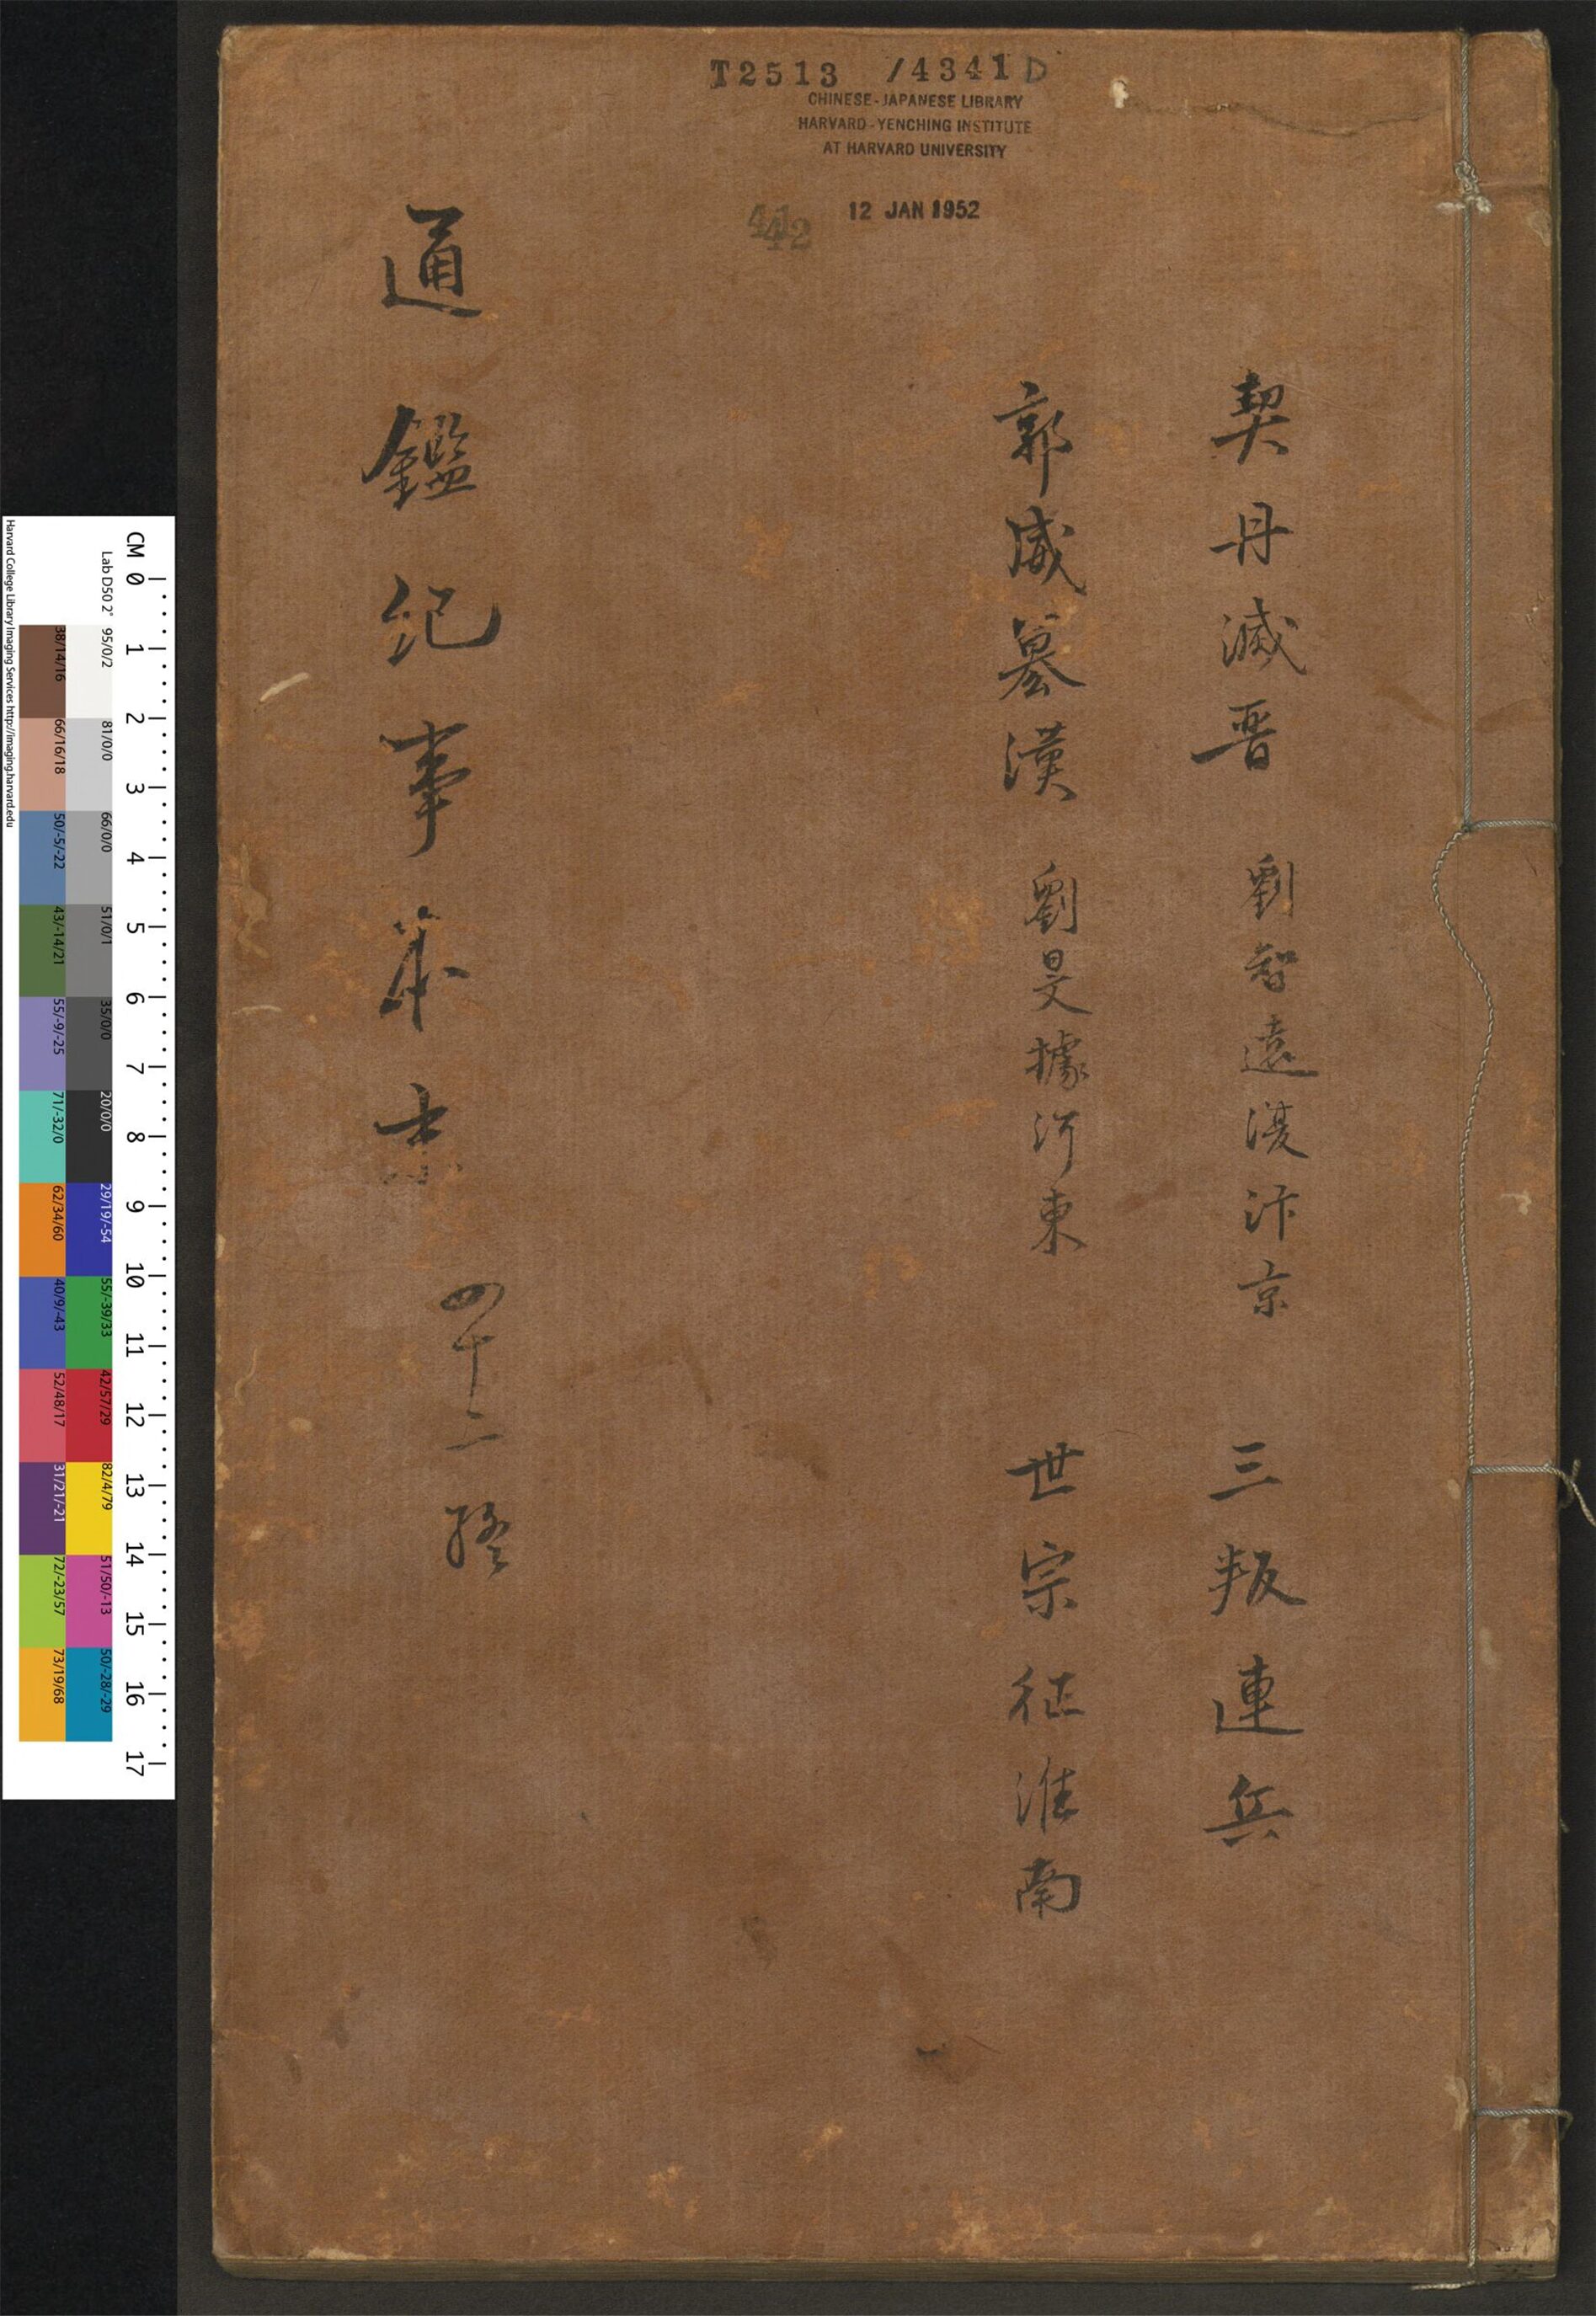 T2513 /4341 D
CHINESE-JAPANESE LIBRARY
HARVARD-YENCHING INSTITUTE
AT HARVARD UNIVERSITY
12 JAN 1952
42
契丹滅晉 劉智遠復汴京 三叛連兵
郭威篡漢 劉旻據河東 世宗征淮南
通鑑紀事本末 四十二 終
CM 0 1 2 3 4 5 6 7 8 9 10 11 12 13 14 15 16 17
Lab D50 2° 95/0/2 81/0/0 66/0/0 51/0/1 35/0/0 20/0/0 29/19/-54 55/-39/33 42/57/29 82/4/79 51/50/-13 50/-28/-29
38/14/16 66/16/18 50/-5/-22 43/-14/21 55/-9/-25 71/-32/0 62/34/60 40/9/-43 52/48/17 31/21/-21 72/-23/57 73/19/68
Harvard College Library Imaging Services http://imaging.harvard.edu